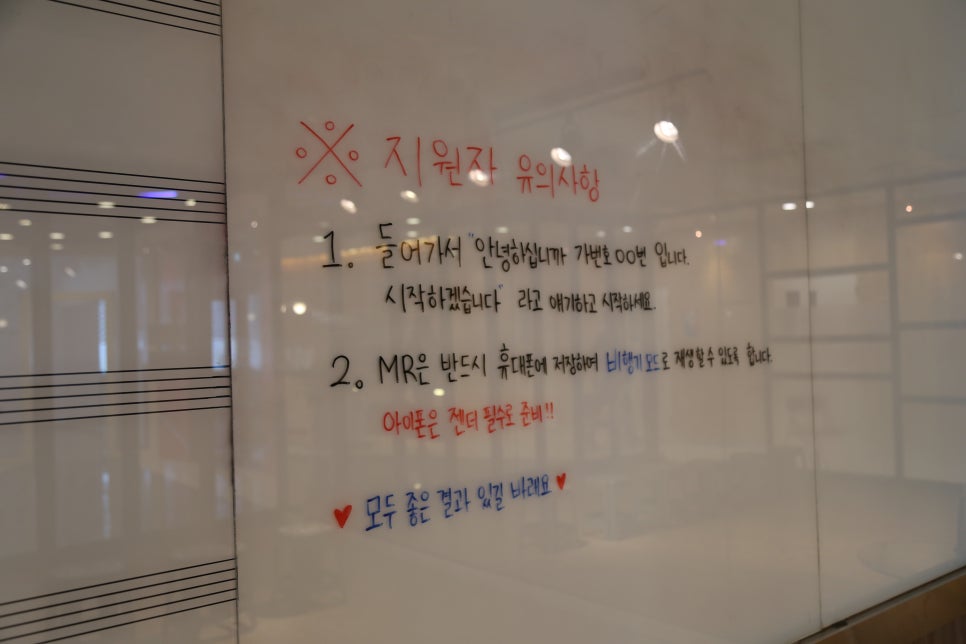 ※ 지원자 유의사항
1. 들어가서 "안녕하십니까 가번호 00번 입니다.
시작하겠습니다" 라고 얘기하고 시작하세요.
2. MR은 반드시 휴대폰에 저장하여 비행기 모드로 재생할 수 있도록 합니다.
아이폰은 젠더 필수로 준비!!
♥ 모두 좋은 결과 있길 바래요 ♥